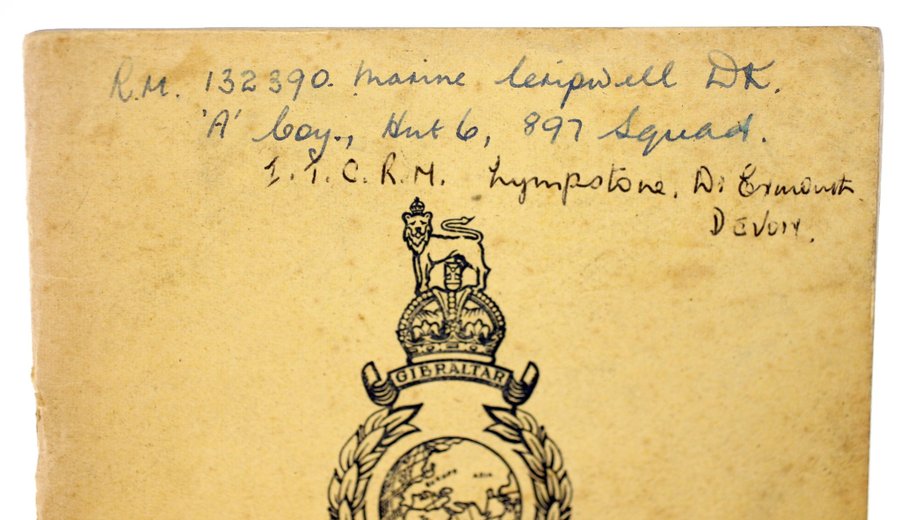 R.M. 132390. Marine Cripwell DK.
'A' Coy., Hut 6, 897 Squad.
I.T.C.R.M. Lympstone, Nr Exmouth
DEVON.
GIBRALTAR
EUROPE ASIA